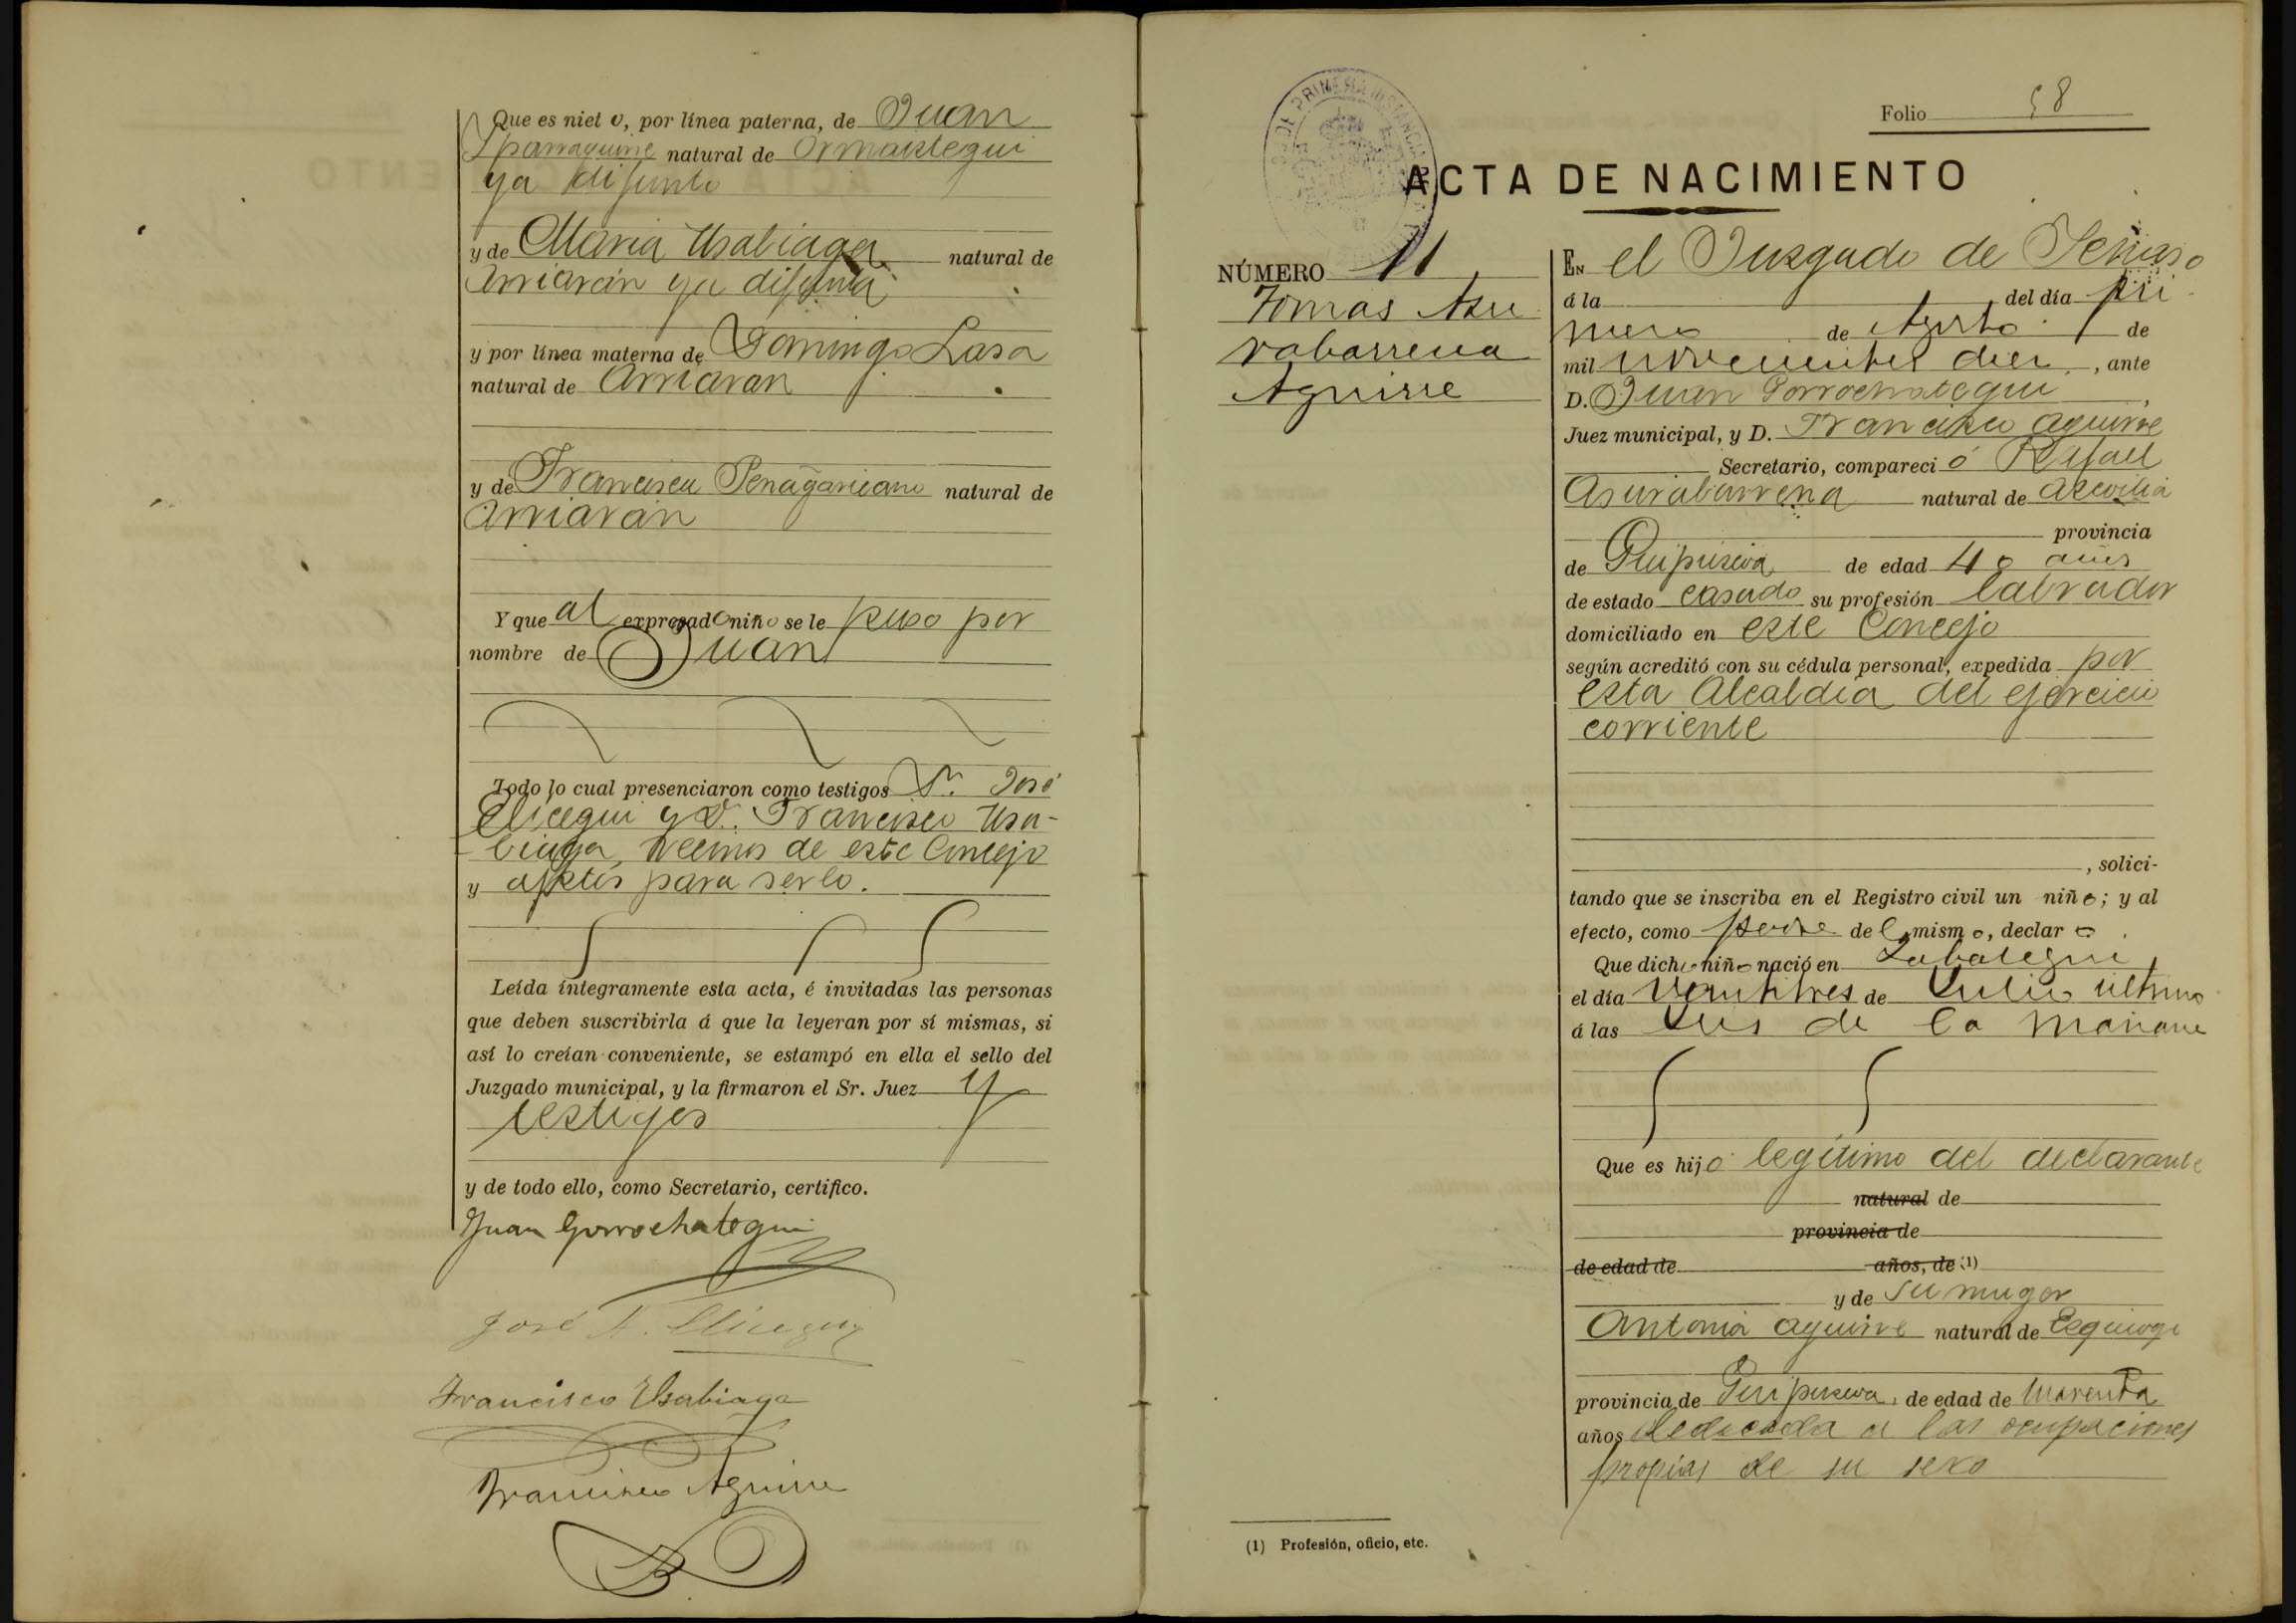 Que es nieto, por línea paterna, de Juan
Yparraguirre natural de Ormaiztegui
ya difunto
y de Maria Usabiaga natural de
Arriarán ya difunta
y por línea materna de Domingo Lasa
natural de Arriaran
y de Francisca Penagaricano natural de
Arriarán
Y que al expresado niño se le puso por
nombre de Juan
Todo lo cual presenciaron como testigos D. José
Elicegui y D. Francisco Usa-
biaga, vecinos de este Concejo
y aptos para serlo.
Leída íntegramente esta acta, é invitadas las personas
que deben suscribirla á que la leyeran por sí mismas, si
así lo creían conveniente, se estampó en ella el sello del
Juzgado municipal, y la firmaron el Sr. Juez y
testigos
y de todo ello, como Secretario, certifico.
Juan Gorrochategui
José A. Elicegui
Francisco Usabiaga
Francisco Aguirre
Folio 58
ACTA DE NACIMIENTO
NÚMERO 11
Tomas Azu
rabarrena
Aguirre
EN el Juzgado de
á la del día pri
mero de Agosto de
mil novecientos diez, ante
D. Juan Gorrochategui
Juez municipal, y D. Francisco Aguirre
Secretario, compareció Rafael
Asurabarrena natural de Azcoitia
provincia
de Guipuzcoa de edad 40 años
de estado casado su profesión labrador
domiciliado en este Concejo
según acreditó con su cédula personal, expedida por
esta Alcaldia del ejercicio
corriente
, solici-
tando que se inscriba en el Registro civil un niño; y al
efecto, como padre del mismo, declaro
Que dicho niño nació en Zabalegui
el día veintitres de Julio último
á las seis de la mañana
Que es hijo legítimo del declarante
natural de
provincia de
de edad de años, de (1)
y de su muger
Antonia Aguirre natural de Ezquioga
provincia de Guipuzcoa, de edad de cuarenta
años dedicada a las ocupaciones
propias de su sexo
(1) Profesión, oficio, etc.